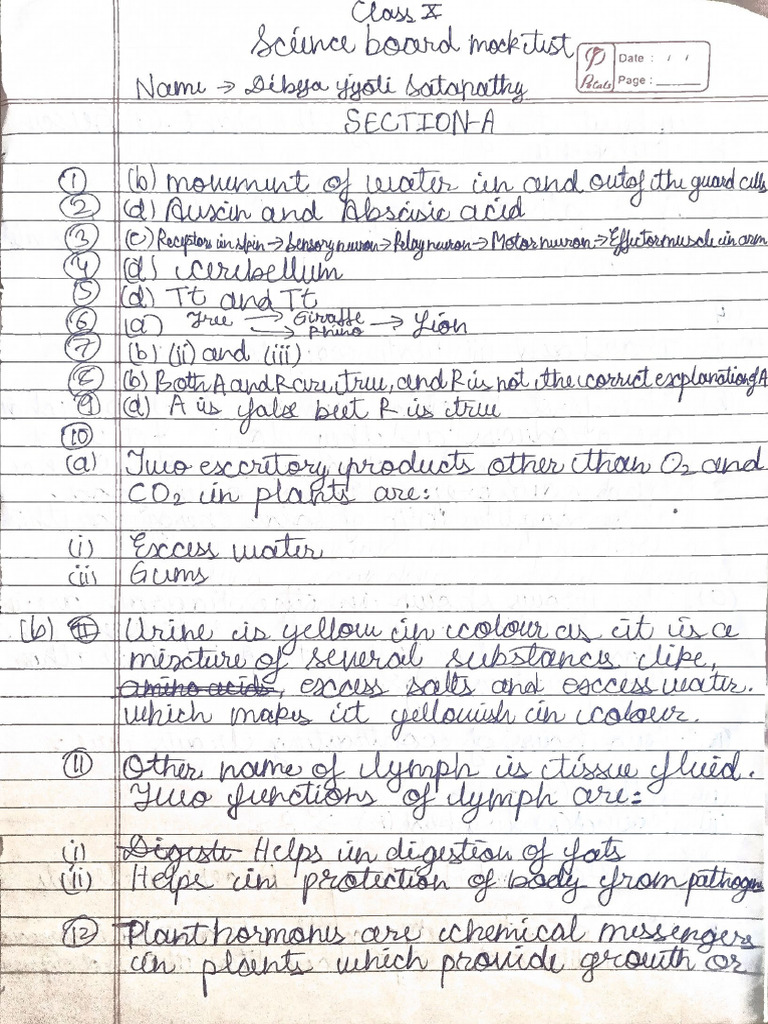 Class X
Science board mock test
Name → Dibya jyoti Satapathy
Petals
Date : / /
Page :
SECTION-A
① (b) movement of water in and out of the guard cells
② (d) Auxin and Abscisic acid
③ (c) Receptors in skin → Sensory neuron → Relay neuron → Motor neuron → Effector muscle in arm
④ (d) cerebellum
⑤ (d) Tt and Tt
⑥ (a) Tree → Giraffe → Lion
→ Rhino
⑦ (b) (ii) and (iii)
⑧ (b) Both A and R are true, and R is not the correct explanation of A
⑨ (d) A is false but R is true
⑩
(a) Two excretory products other than O₂ and
CO₂ in plants are:
(i) Excess water
(ii) Gums
(b) Urine is yellow in colour as it is a
mixture of several substances like,
amino acids, excess salts and excess water.
which makes it yellowish in colour.
⑪ Other name of lymph is tissue fluid.
Two functions of lymph are:
(i) Digesti Helps in digestion of fats
(ii) Helps in protection of body from pathogens
⑫ Plant hormones are chemical messengers
in plants which provide growth or